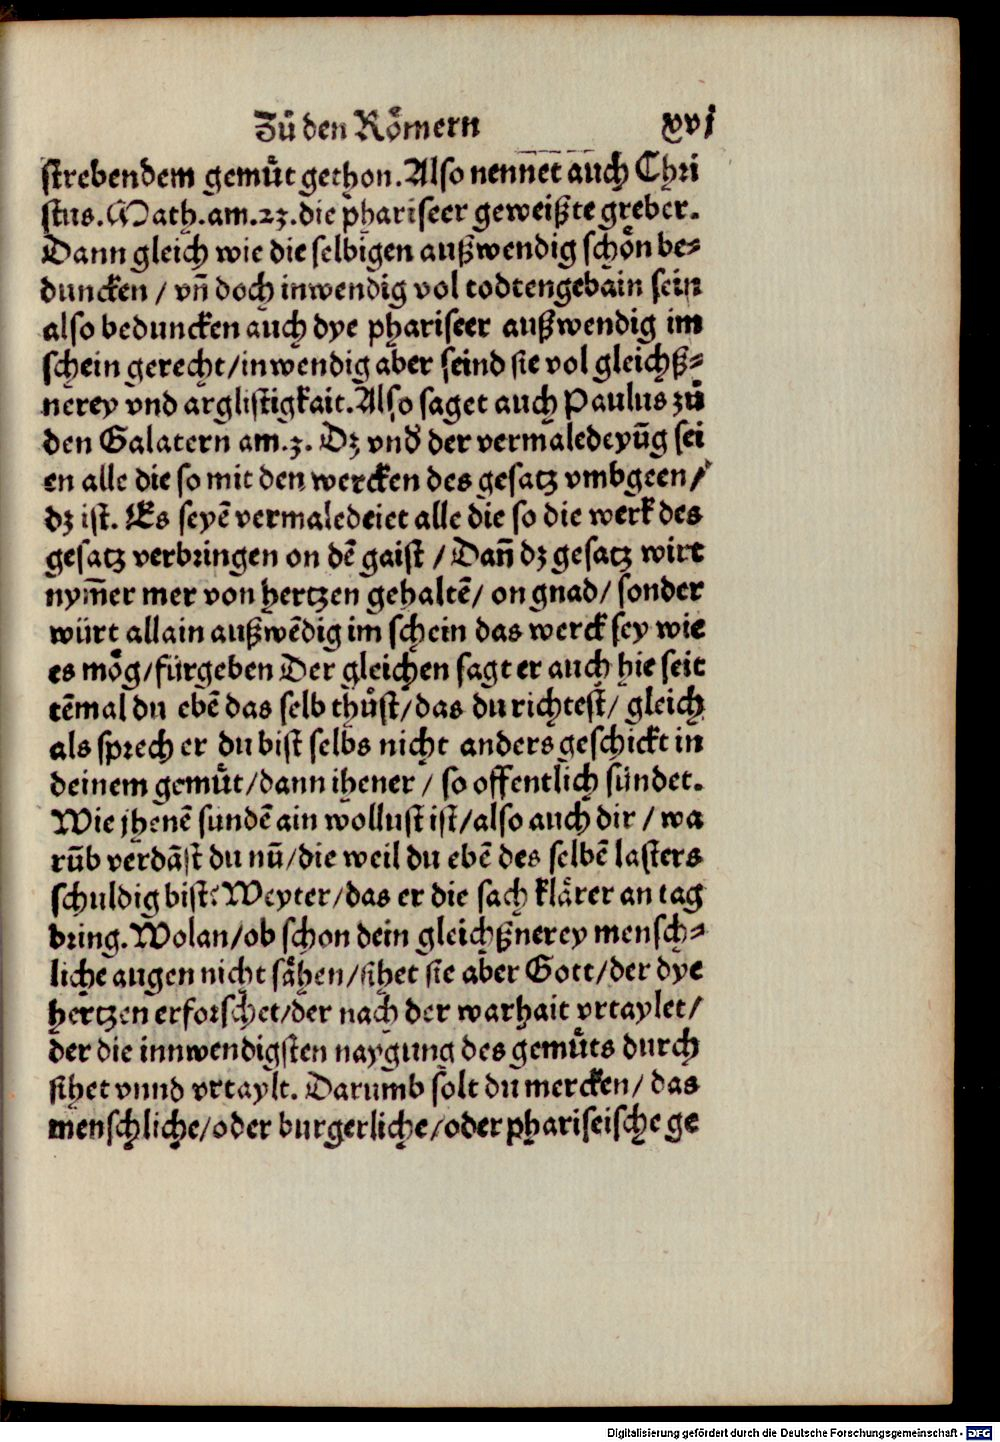 Zů den Rőmern xvj
strebendem gemůt gethon. Also nennet auch Chri
stus. Math. am. 23. die phariseer geweißte greber.
Dann gleich wie die selbigen außwendig schőn be⸗
duncken / vñ doch inwendig vol todtengebain sein
also beduncken auch dye phariseer außwendig im
schein gerecht/inwendig aber seind sie vol gleichß⸗
nerey vnd arglistigkait. Also saget auch Paulus zů
den Galatern am. 3. Dz vnd̕ der vermaledeyũg sei
en alle die so mit den wercken des gesatz vmbgeen/
dz ist. Es seyẽ vermaledeiet alle die so die werk des
gesatz verbringen on dẽ gaist / Dañ dz gesatz wirt
nym̃er mer von hertzen gehaltẽ/ on gnad/ sonder
würt allain außwẽdig im schein das werck sey wie
es mőg/fürgeben Der gleichen sagt er auch hie seit
tẽmal du ebẽ das selb thůst/das du richtest/ gleich
als sprech er du bist selbs nicht anders geschickt in
deinem gemůt/dann ihener / so offentlich sündet.
Wie jhenẽ sundẽ ain wollust ist/also auch dir / wa
rũb verdãst du nũ/die weil du ebẽ des selbẽ lasters
schuldig bist? Weyter/das er die sach klärer an tag
bring. Wolan/ob schon dein gleichßnerey mensch⸗
liche augen nicht sähen/sihet sie aber Gott/der dye
hertzen erforschet/der nach der warhait vrtaylet/
der die innwendigsten naygung des gemůts durch
sihet vnnd vrtaylt. Darumb solt du mercken/ das
menschliche/oder burgerliche/oder phariseische ge
Digitalisierung gefördert durch die Deutsche Forschungsgemeinschaft - DFG